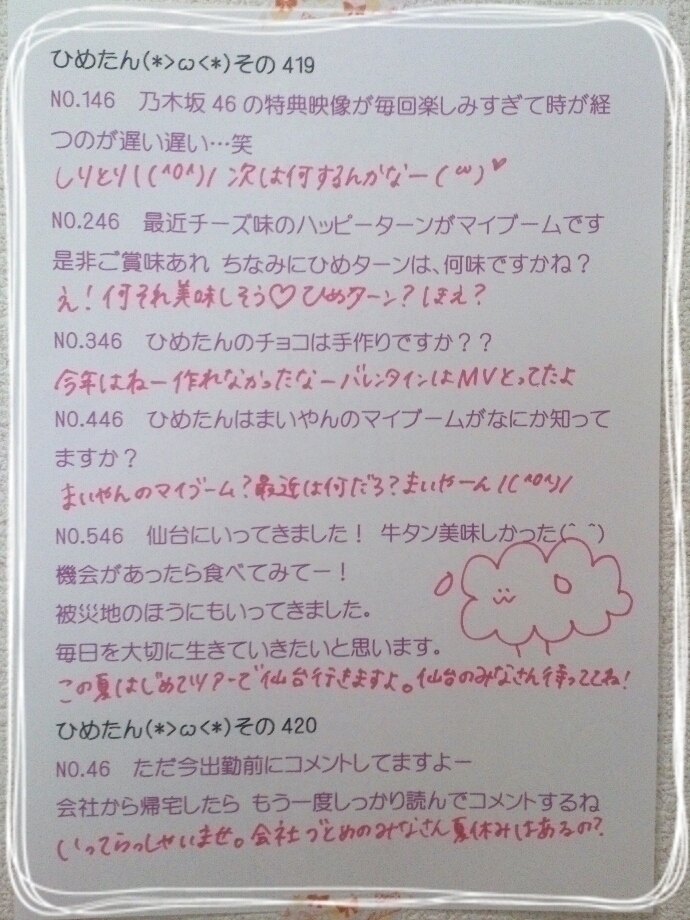 ひめたん(*>ω<*)その419
NO.146　乃木坂46の特典映像が毎回楽しみすぎて時が経
つのが遅い遅い…笑
しりとり!(^o^)/ 次は何するんかなー(ω)♥
NO.246　最近チーズ味のハッピーターンがマイブームです
是非ご賞味あれ ちなみにひめターンは、何味ですかね？
え！何それ美味しそう♡ひめターン？ほえ？
NO.346　ひめたんのチョコは手作りですか？？
今年はねー作れなかったなーバレンタインはMVとってたよ
NO.446　ひめたんはまいやんのマイブームがなにか知って
ますか？
まいやんのマイブーム？最近は何だろ？まいやーん\(^o^)/
NO.546　仙台にいってきました！ 牛タン美味しかった(^ ^)
機会があったら食べてみてー！
被災地のほうにもいってきました。
毎日を大切に生きていきたいと思います。
この夏はじめてツアーで仙台行きますよ。仙台のみなさん待っててね！
ひめたん(*>ω<*)その420
NO.46　ただ今出勤前にコメントしてますよー
会社から帰宅したら もう一度しっかり読んでコメントするね
いってらっしゃいませ。会社づとめのみなさん夏休みはあるの？